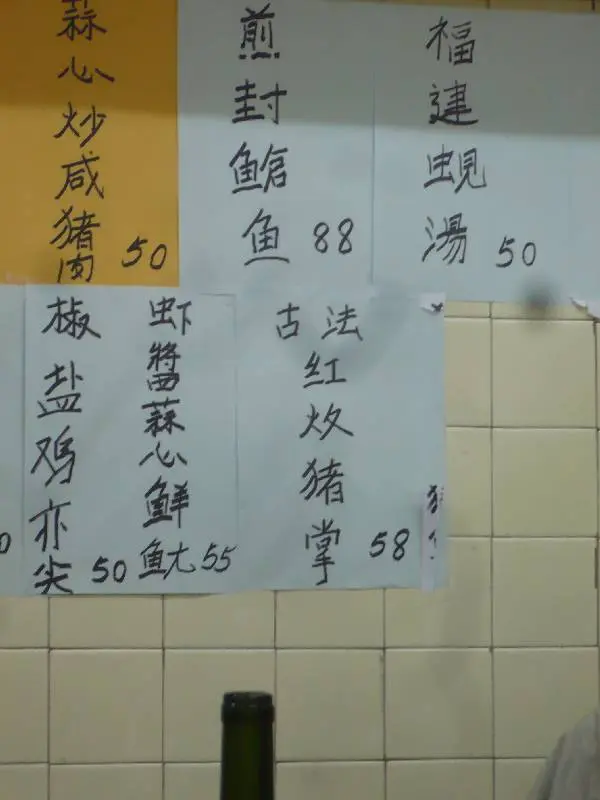 蒜心炒咸猪肉 50
煎封鯧鱼 88
福建蜆湯 50
椒盐鸡亦尖 50
虾醬蒜心鲜魷 55
古法红炆猪掌 58